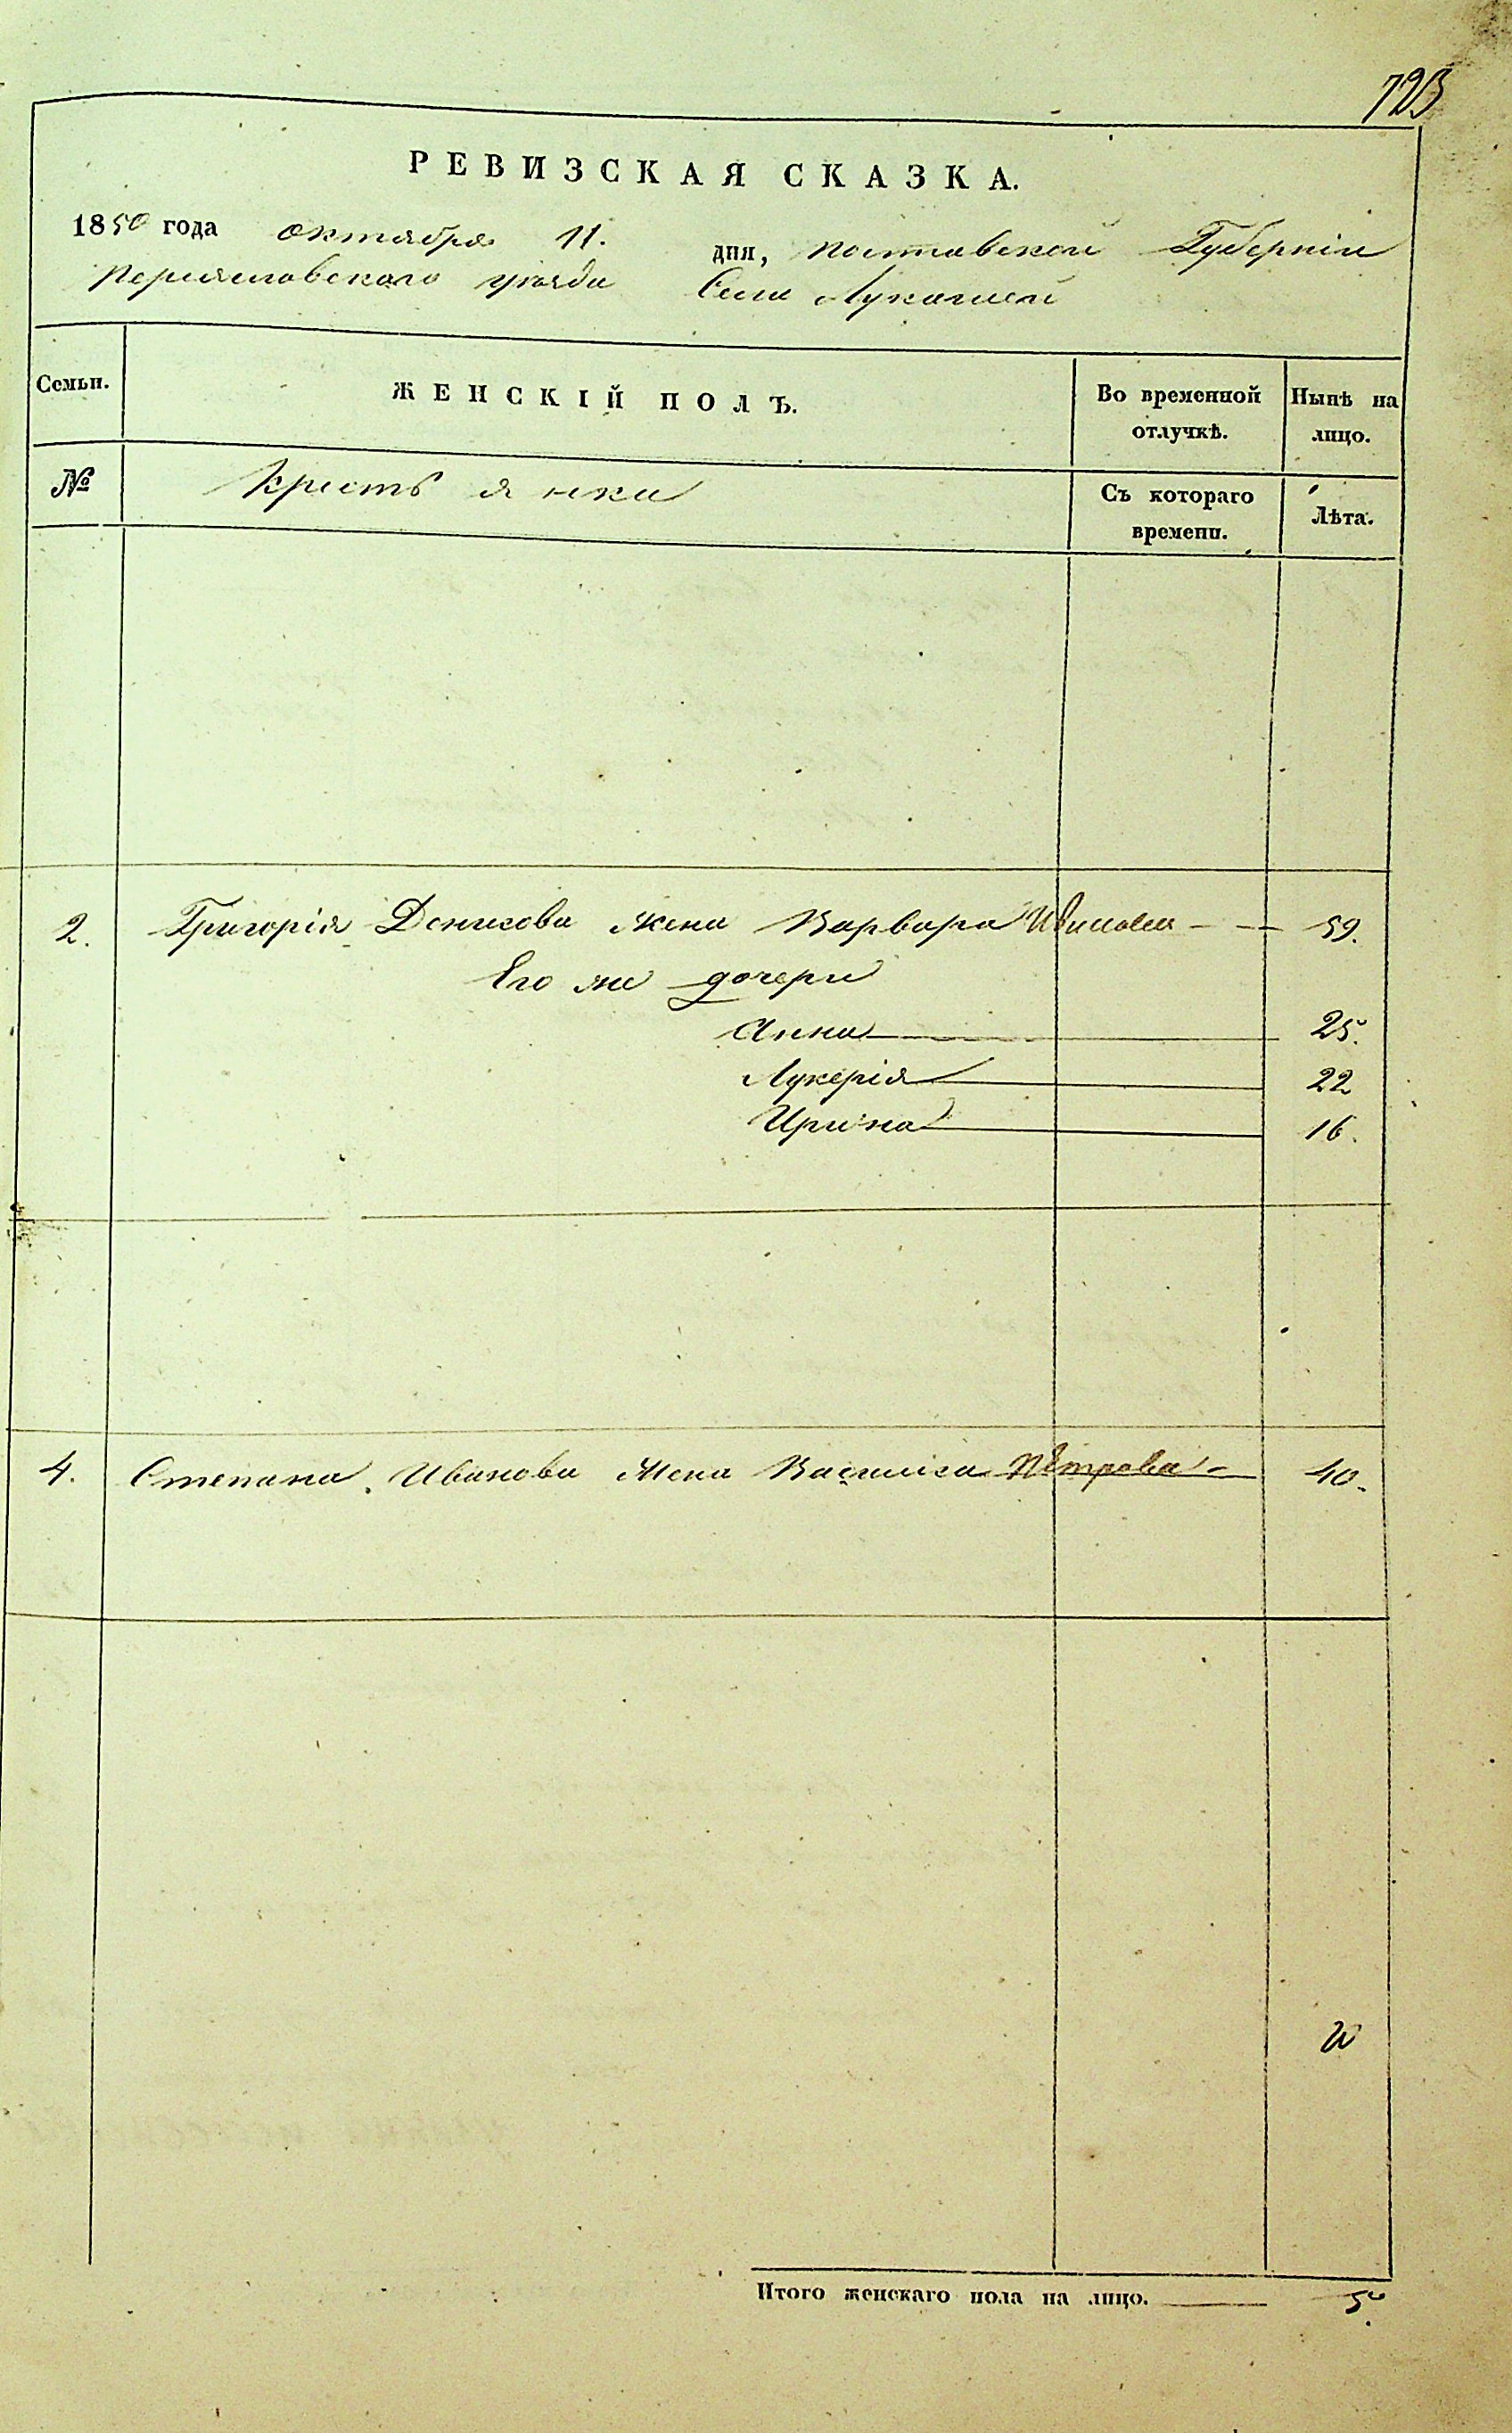 723
РЕВИЗСКАЯ СКАЗКА.
1850 года октября 11. дня, Полтавской Губерніи
Переяславского уезда Села Лукашей
Семьи. ЖЕНСКІЙ ПОЛЪ. Во временной отлучкѣ. Нынѣ на лицо.
№ Крестьянки Съ котораго времени. Лѣта.
2. Григорія Денисова жена Варвара Иванова 59.
Его же дочери
Анна 25.
Лукерія 22
Ирина 16.
4. Степана Иванова жена Василиса Петрова 40.
Итого женскаго пола на лицо. 5.